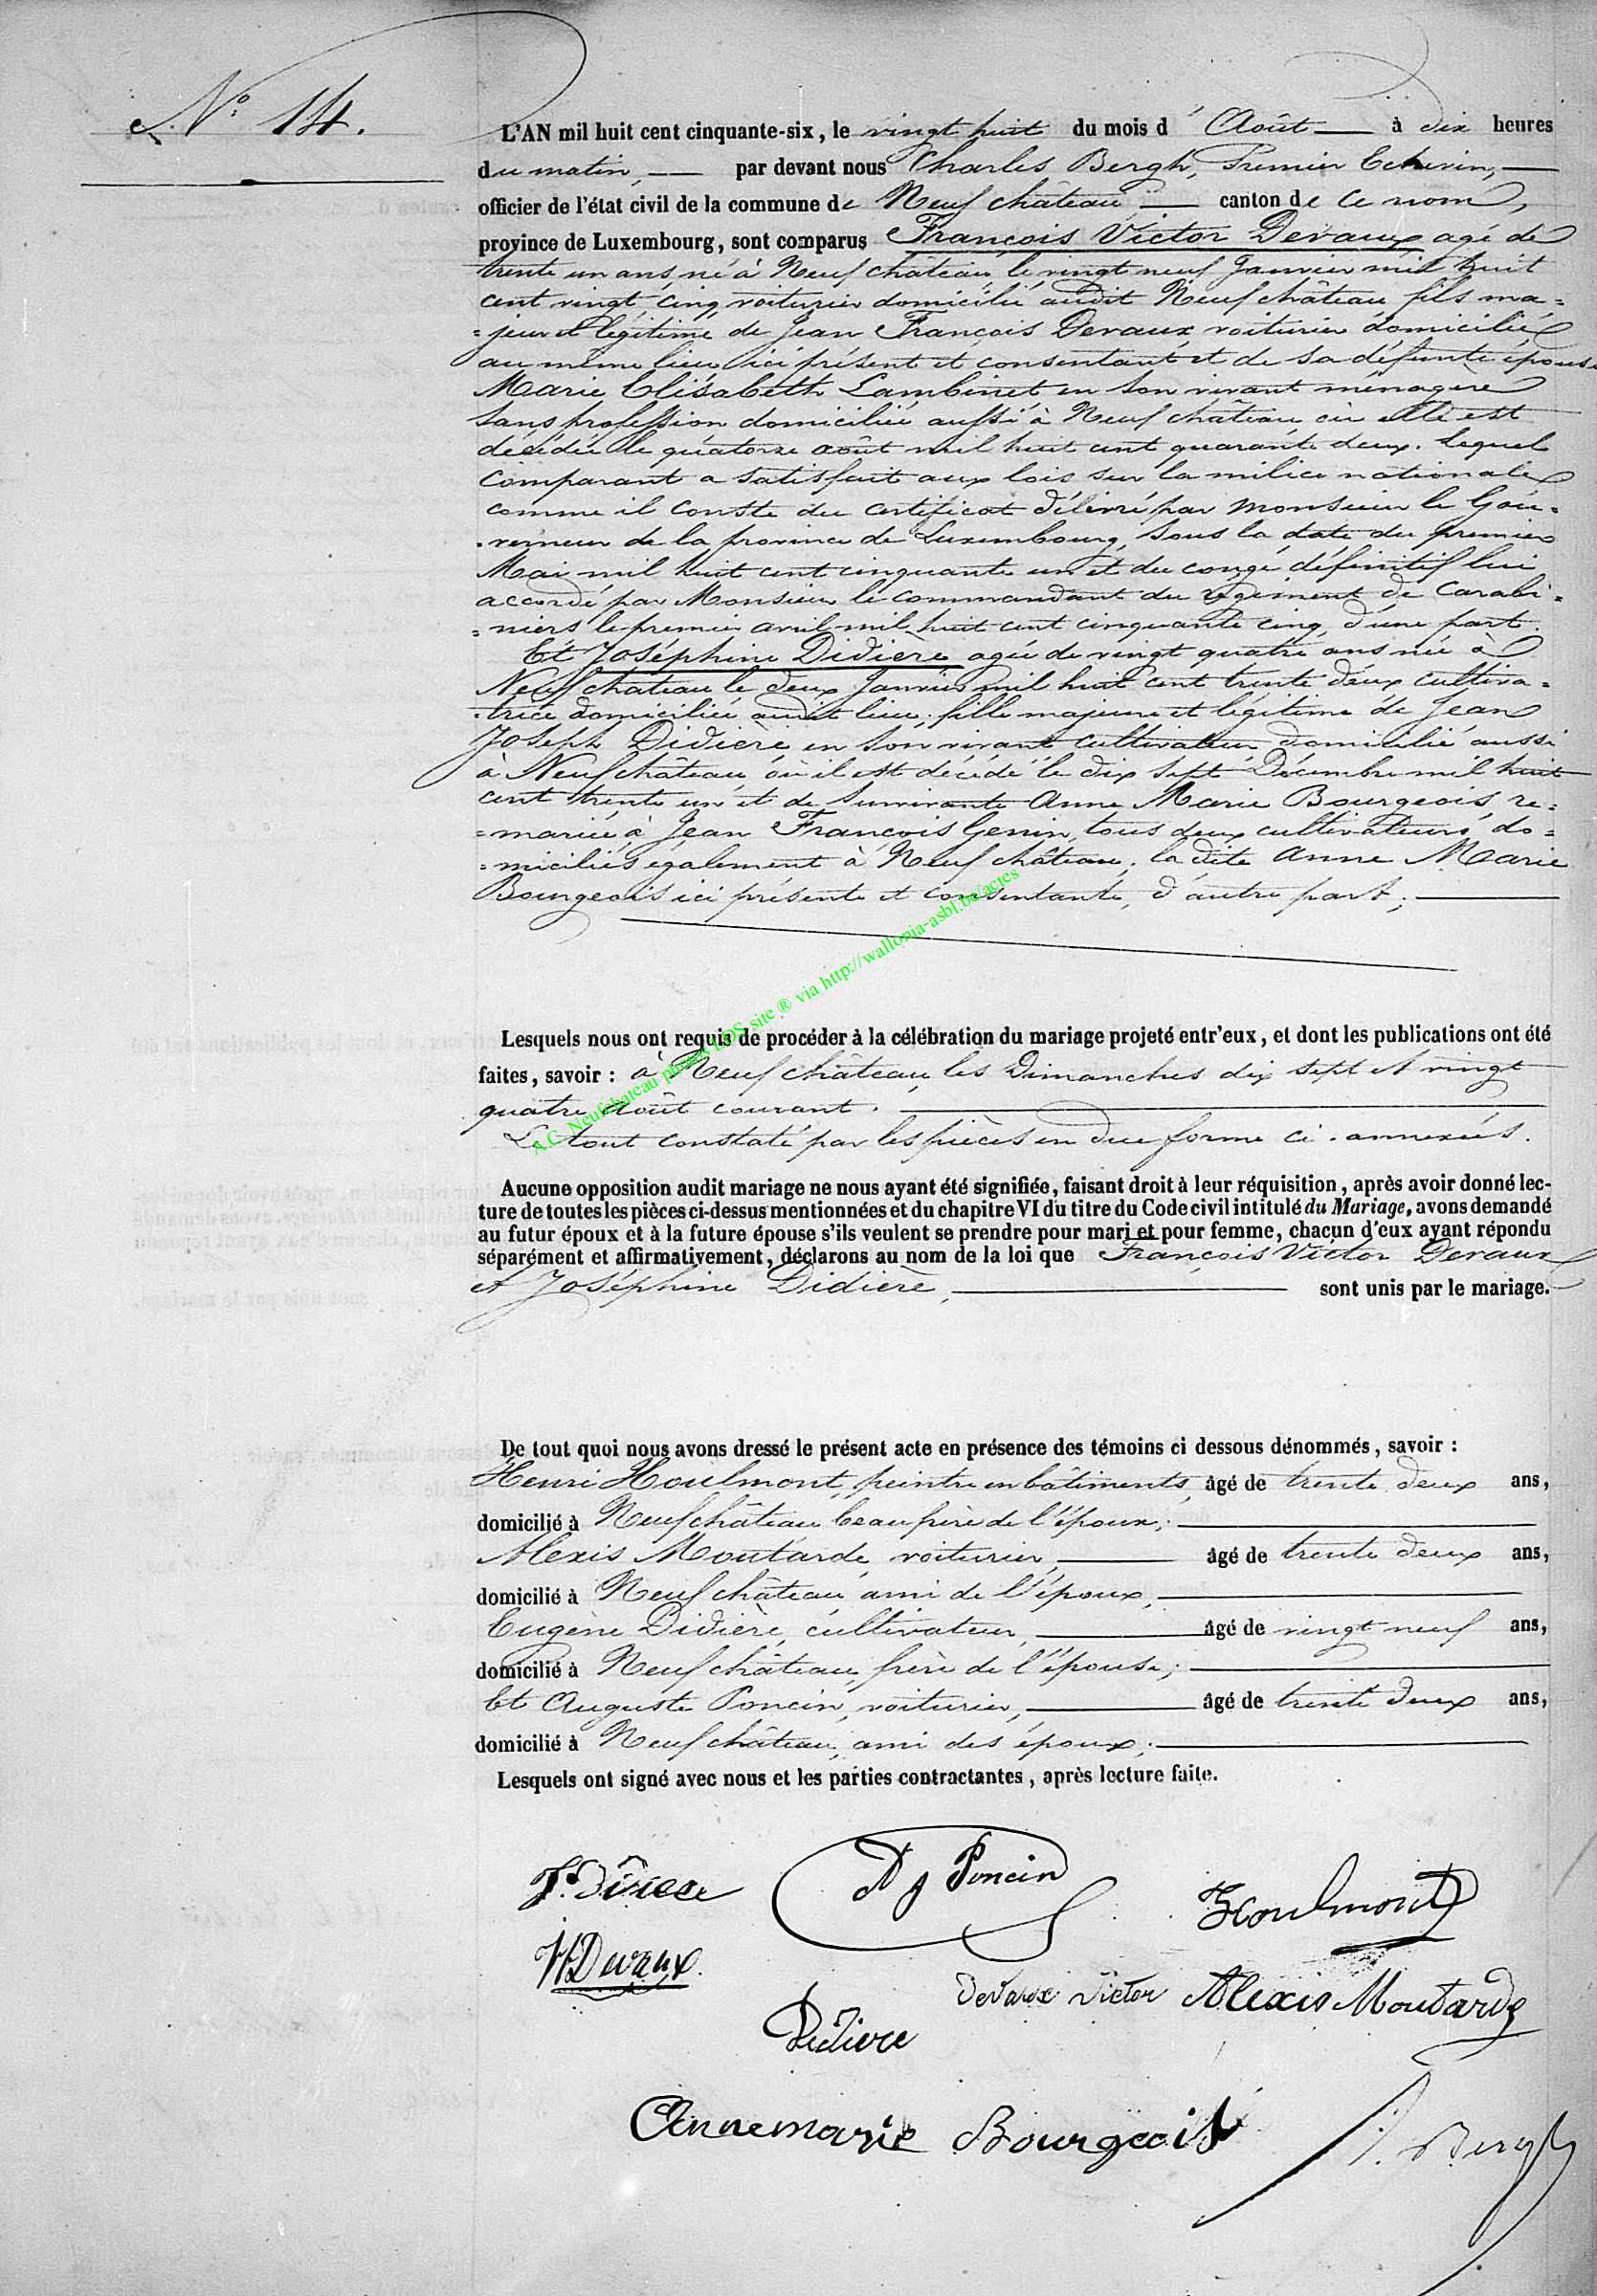 N° 14.
L'AN mil huit cent cinquante-six, le vingt huit du mois d'Août à dix heures
du matin, par devant nous Charles Bergh, Premier Echevin,
officier de l'état civil de la commune de Neufchâteau canton de ce nom,
province de Luxembourg, sont comparus François Victor Devaux agé de
trente un ans né à Neufchâteau, le vingt neuf Janvier mil huit
cent vingt cinq, voiturier domicilié audit Neufchâteau fils ma=
=jeur et légitime de Jean François Devaux voiturier domicilié
au même lieu ici présent et consentant et de sa défunte épouse
Marie Elisabeth Lambinet en son vivant ménagère
sans profession domiciliée aussi à Neufchâteau où elle est
décédée le quatorze août mil huit cent quarante deux. Lequel
Comparant a satisfait aux lois sur la milice nationale
comme il conste du certificat délivré par Monsieur le Gou-
-verneur de la province de Luxembourg, sous la date du premier
Mai mil huit cent cinquante un et du congé définitif lui
accordé par Monsieur le commandant du régiment de Carabi=
=niers le premier avril mil huit cent cinquante cinq, d'une part.
Et Joséphine Didière agée de vingt quatre ans née à
Neufchateau le deux Janvier mil huit cent trente deux cultiva=
-trice domiciliée audit lieu, fille majeure et légitime de Jean
Joseph Didière en son vivant cultivateur domicilié aussi
à Neufchâteau où il est décédé le dix sept Décembre mil huit
cent trente un et de survivante Anne Marie Bourgeois, re=
=mariée à Jean François Genin, tous deux cultivateurs do=
=miciliés également à Neufchâteau, la dite Anne Marie
Bourgeois ici présente et consentante, d'autre part;
Lesquels nous ont requis de procéder à la célébration du mariage projeté entr'eux, et dont les publications ont été
faites, savoir : à Neufchâteau les Dimanches dix sept et vingt
quatre Août courant.
Le tout constaté par les pièces en due forme ci-annexées.
Aucune opposition audit mariage ne nous ayant été signifiée, faisant droit à leur réquisition, après avoir donné lec-
ture de toutes les pièces ci-dessus mentionnées et du chapitre VI du titre du Code civil intitulé du Mariage, avons demandé
au futur époux et à la future épouse s'ils veulent se prendre pour mari et pour femme, chacun d'eux ayant répondu
séparément et affirmativement, déclarons au nom de la loi que François Victor Devaux
et Joséphine Didière, sont unis par le mariage.
De tout quoi nous avons dressé le présent acte en présence des témoins ci dessous dénommés, savoir :
Henri Houlmont, peintre en bâtiments, âgé de trente deux ans,
domicilié à Neufchâteau beau frère de l'époux;
Alexis Moutarde, voiturier, âgé de trente deux ans,
domicilié à Neufchâteau ami de l'époux,
Eugène Didière, cultivateur, âgé de vingt neuf ans,
domicilié à Neufchâteau, frère de l'épouse;
Et Auguste Poncin, voiturier, âgé de trente deux ans,
domicilié à Neufchâteau, ami des époux;
Lesquels ont signé avec nous et les parties contractantes, après lecture faite.
Poncin
Houlmont
Devaux
Devaux victor Alexis Moutarde
Didiere
Annemarie Bourgeois
Bergh
A.C. Neufchateau photos LDS site ® via http://wallonia-asbl.be/actes